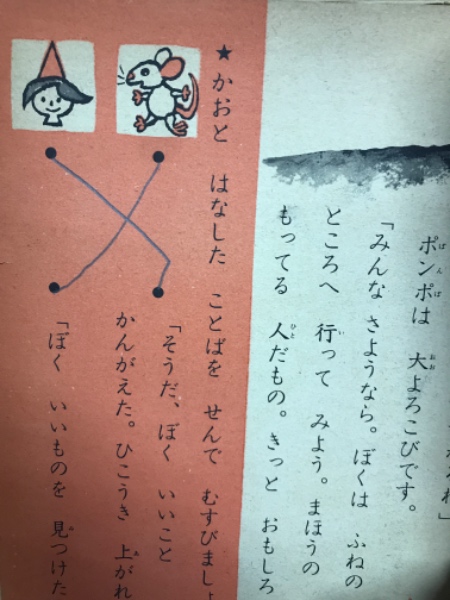 ポンポは 大よろこびです。
「みんな さようなら。ぼくは ふねの
ところへ 行って みよう。まほうの
もってる 人だもの。きっと おもしろ
★かおと はなした ことばを せんで むすびましょ
「そうだ、ぼく いいこと
かんがえた。ひこうき 上がれ
「ぼく いいものを 見つけた